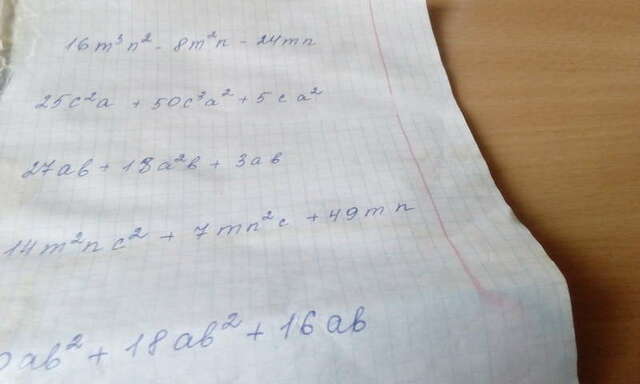 16m³n² - 8m²n - 24mn
25c²a + 50c³a² + 5ca²
27ab + 18a²b + 3ab
14m²nc² + 7mn²c + 49mn
0ab² + 18ab² + 16ab